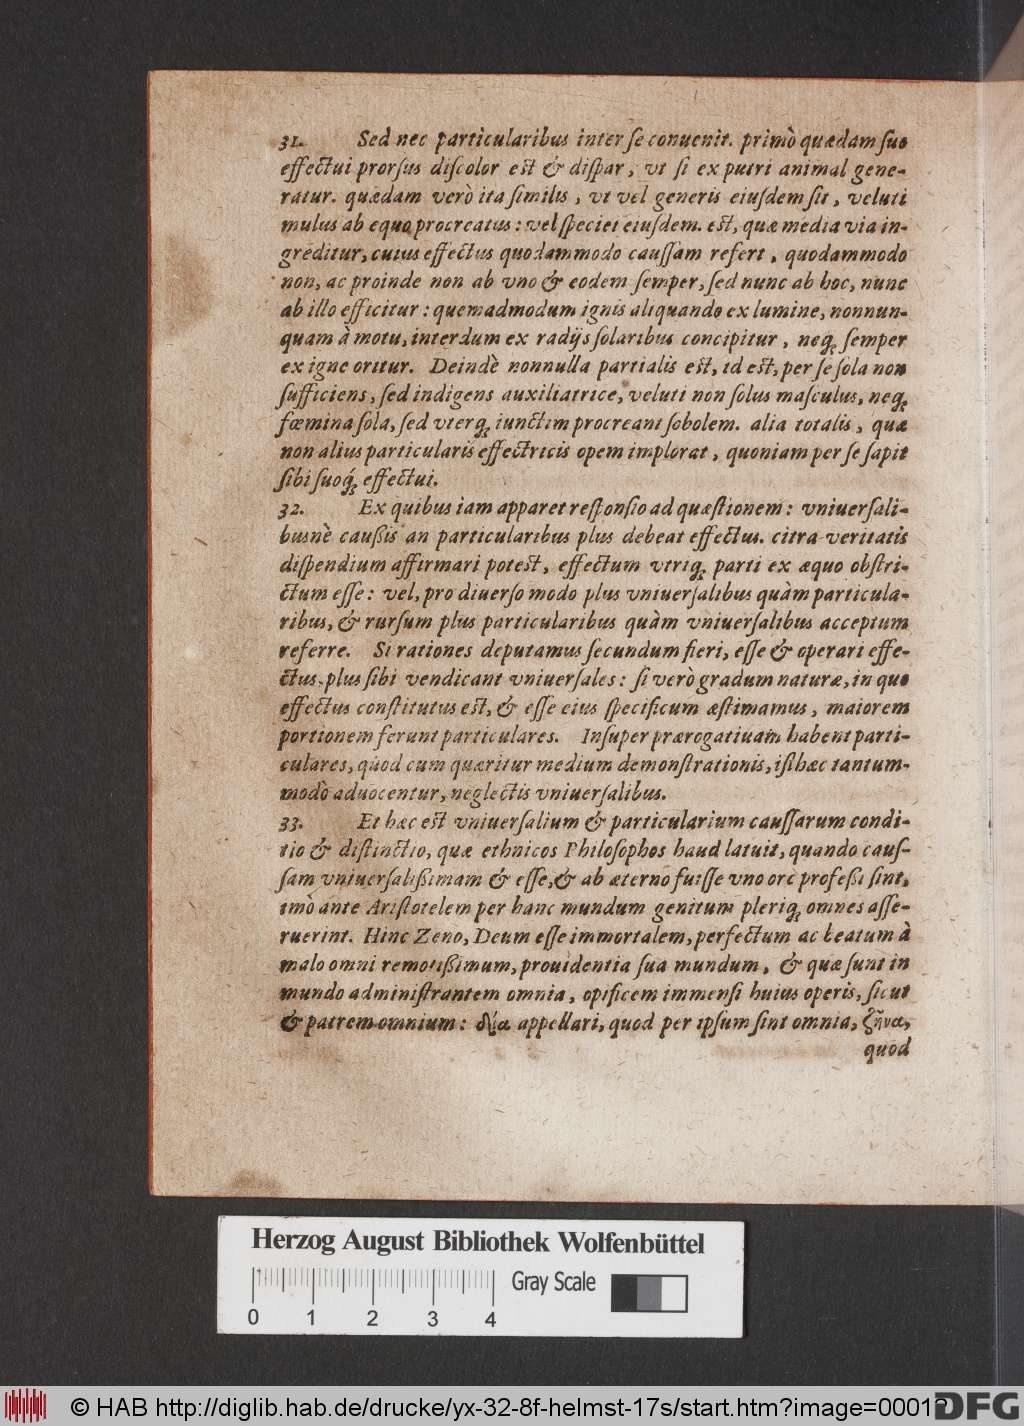 31. Sed nec particularibus inter se conuenit. primò quædam suo
effectui prorsus discolor est & dispar, vt si ex putri animal gene-
ratur. quædam verò ita similis, vt vel generis eiusdem sit, veluti
mulus ab equo procreatus: vel speciei eiusdem. est, quæ media via in-
greditur, cuius effectus quodammodo caussam refert, quodammodo
non, ac proinde non ab vno & eodem semper, sed nunc ab hoc, nunc
ab illo efficitur: quemadmodum ignis aliquando ex lumine, nonnun-
quam à motu, interdum ex radijs solaribus concipitur, neq; semper
ex igne oritur. Deindè nonnulla partialis est, id est, per se sola non
sufficiens, sed indigens auxiliatrice, veluti non solus masculus, neq;
fœmina sola, sed vterq; iunctim procreant sobolem. alia totalis, quæ
non alius particularis effectricis opem implorat, quoniam per se sapit
sibi suoq́; effectui.
32. Ex quibus iam apparet responsio ad quæstionem: vniuersali-
busnè caußis an particularibus plus debeat effectus. citra veritatis
dispendium affirmari potest, effectum vtriq; parti ex æquo obstri-
ctum esse: vel, pro diuerso modo plus vniuersalibus quàm particula-
ribus, & rursum plus particularibus quàm vniuersalibus acceptum
referre. Si rationes deputamus secundum fieri, esse & operari effe-
ctus, plus sibi vendicant vniuersales: si verò gradum naturæ, in quo
effectus constitutus est, & esse eius specificum æstimamus, maiorem
portionem ferunt particulares. Insuper prærogatiuam habent parti-
culares, quod cum quæritur medium demonstrationis, isthæc tantum-
modò aduocentur, neglectis vniuersalibus.
33. Et hæc est vniuersalium & particularium caussarum condi-
tio & distinctio, quæ ethnicos Philosophos haud latuit, quando caus-
sam vniuersalißimam & esse, & ab æterno fuisse vno ore profeßi sint,
imò ante Aristotelem per hanc mundum genitum pleriq; omnes asse-
ruerint. Hinc Zeno, Deum esse immortalem, perfectum ac beatum à
malo omni remotißimum, prouidentia sua mundum, & quæ sunt in
mundo administrantem omnia, opificem immensi huius operis, sicut
& patrem omnium: δία appellari, quod per ipsum sint omnia, ζῆνα,
quod
Herzog August Bibliothek Wolfenbüttel
Gray Scale
0 1 2 3 4
© HAB http://diglib.hab.de/drucke/yx-32-8f-helmst-17s/start.htm?image=00012
DFG